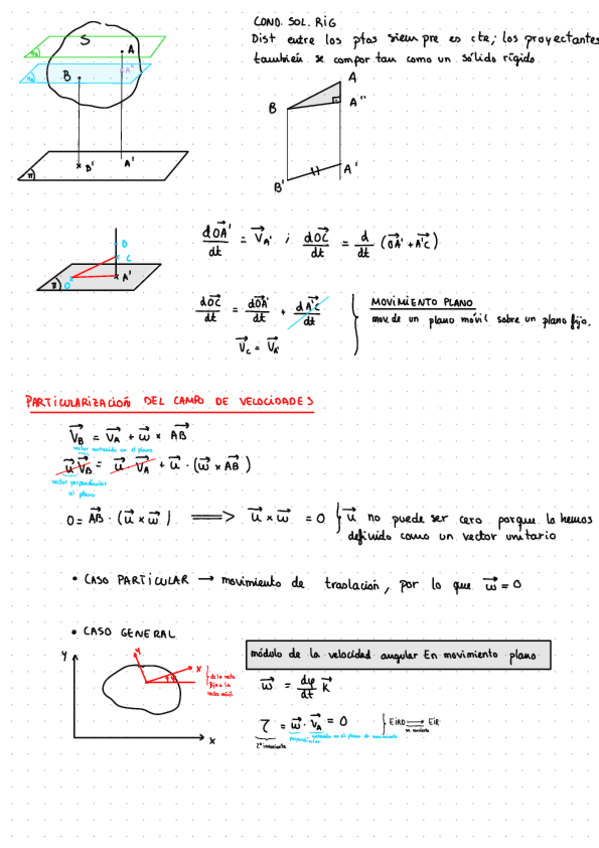 COND. SOL. RIG
Dist entre los ptos siempre es cte; los proyectantes
también se comportan como un sólido rígido.
S
A
A''
B
B'
A'
π
A
B
A''
A'
B'
D
C
A'
O
π
dOA'/dt = V_A' ; dOC/dt = d/dt (OA' + A'C)
dOC/dt = dOA'/dt + dA'C/dt
V_C = V_A'
MOVIMIENTO PLANO
mov. de un plano móvil sobre un plano fijo.
PARTICULARIZACIÓN DEL CAMPO DE VELOCIDADES
V_B = V_A + ω × AB
vector contenido en el plano
u V_B = u V_A + u · (ω × AB)
vector perpendicular
al plano
0 = AB · (u × ω) ⟹ u × ω = 0
u no puede ser cero porque lo hemos
definido como un vector unitario
• CASO PARTICULAR → movimiento de traslación, por lo que ω = 0
• CASO GENERAL
Y
y
x
φ
de la recta
fija a la
recta móvil
X
módulo de la velocidad angular En movimiento plano
ω = dφ/dt K
τ = ω · V_A = 0
2º invariante
perpendicular
contenida en el plano de movimiento
EIRD ⟹ EIR
se convierte